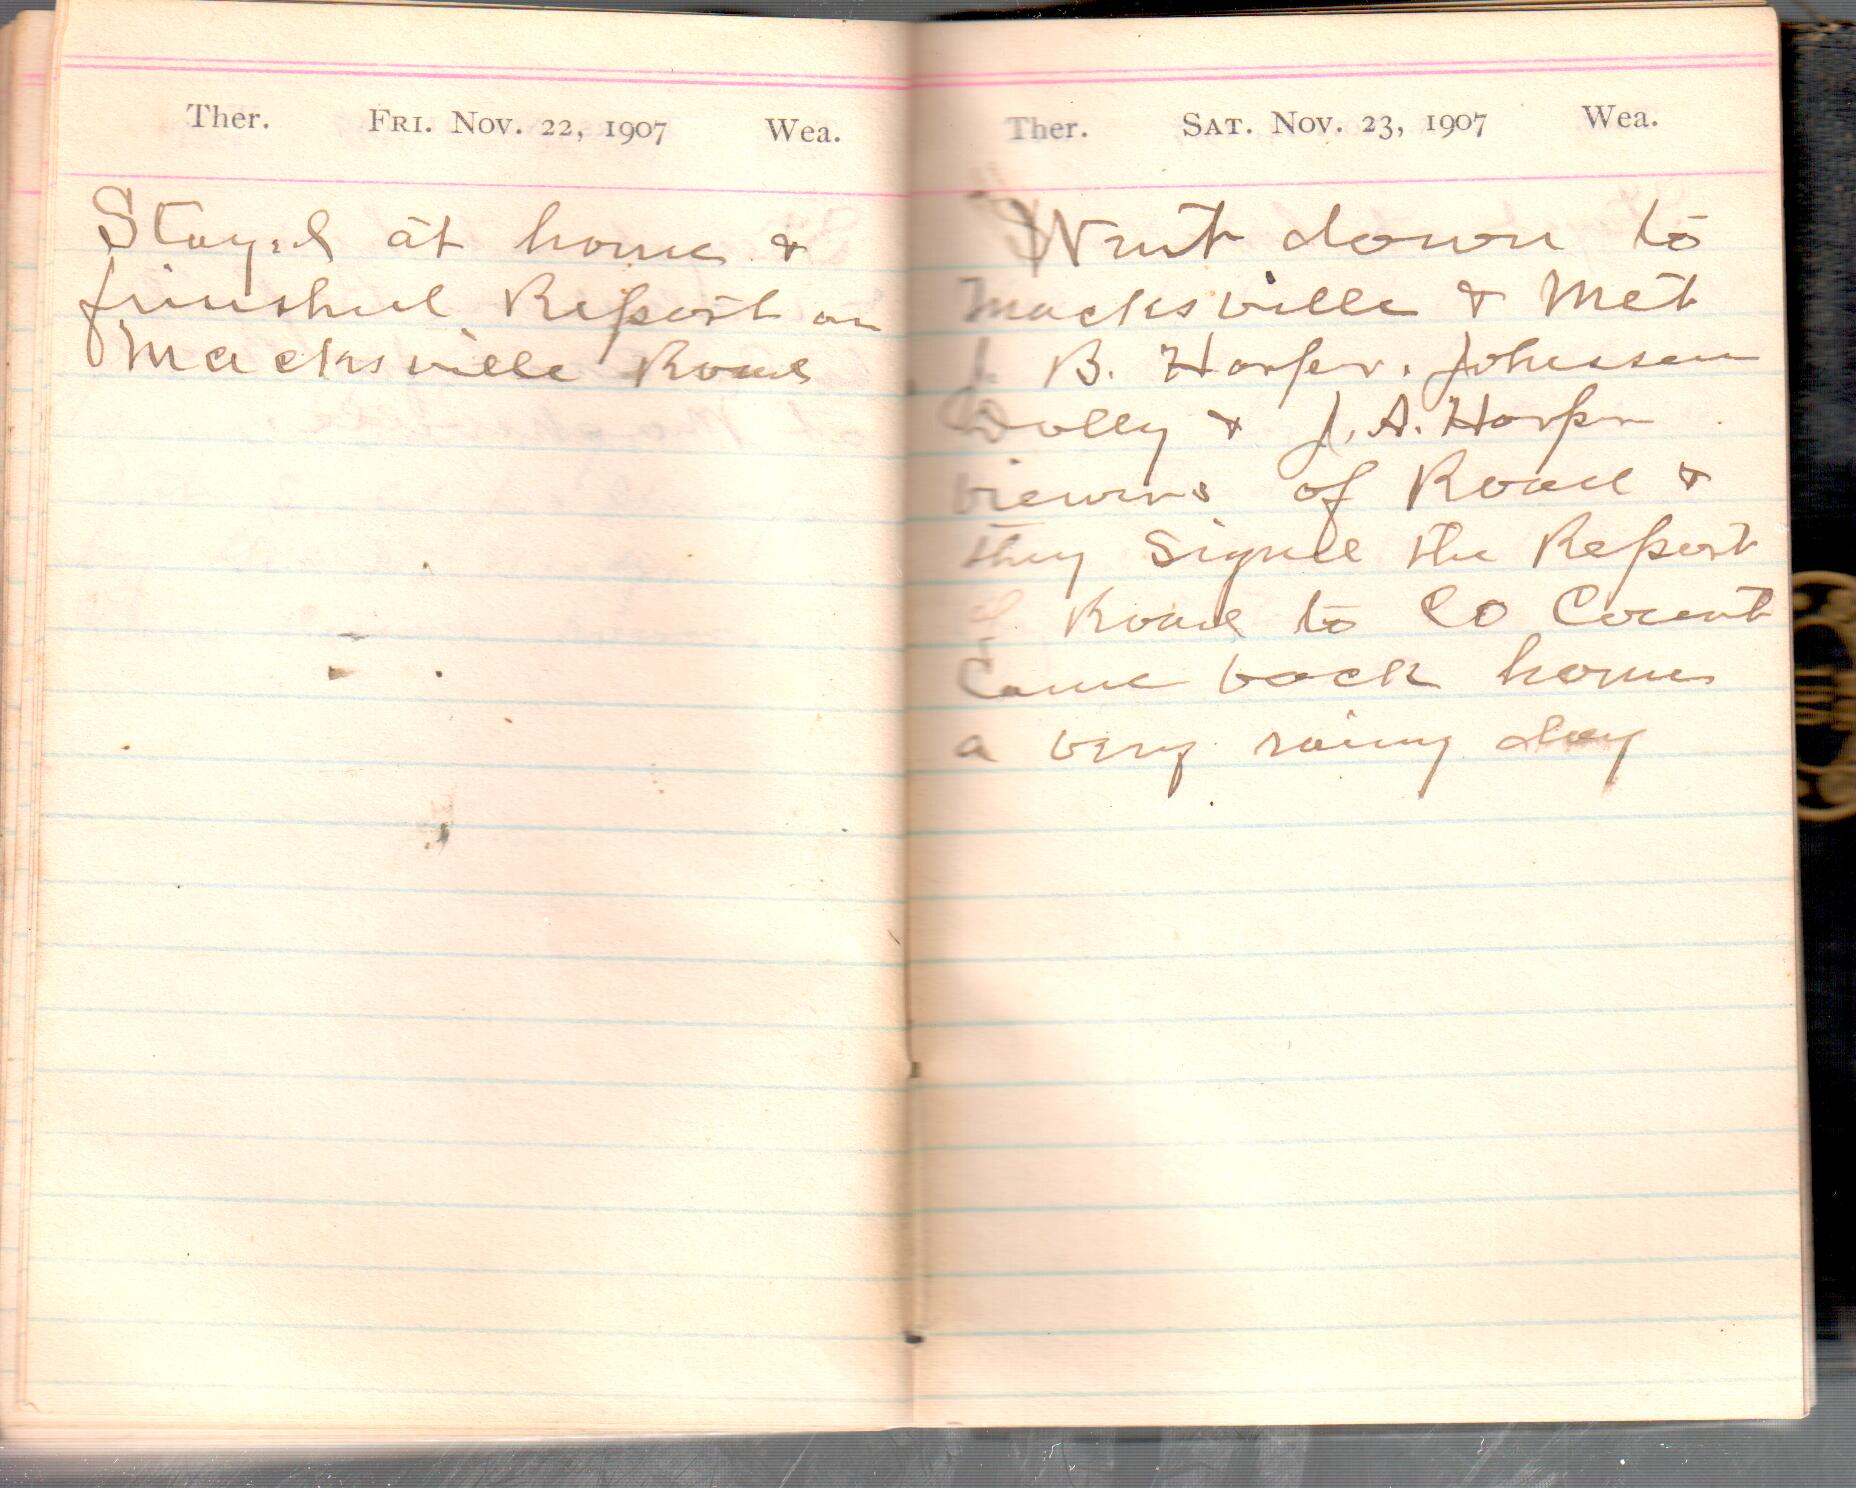 Ther. Fri. Nov. 22, 1907 Wea.
Stayed at home &
finished Report on
Macksville Road
Ther. Sat. Nov. 23, 1907 Wea.
Went down to
Macksville & Met
J. B. Harper. Johnson
Dolly & J. A. Harper
viewers of Road &
they Signed the Report
of Road to Co Court
Came back home
a very rainy day